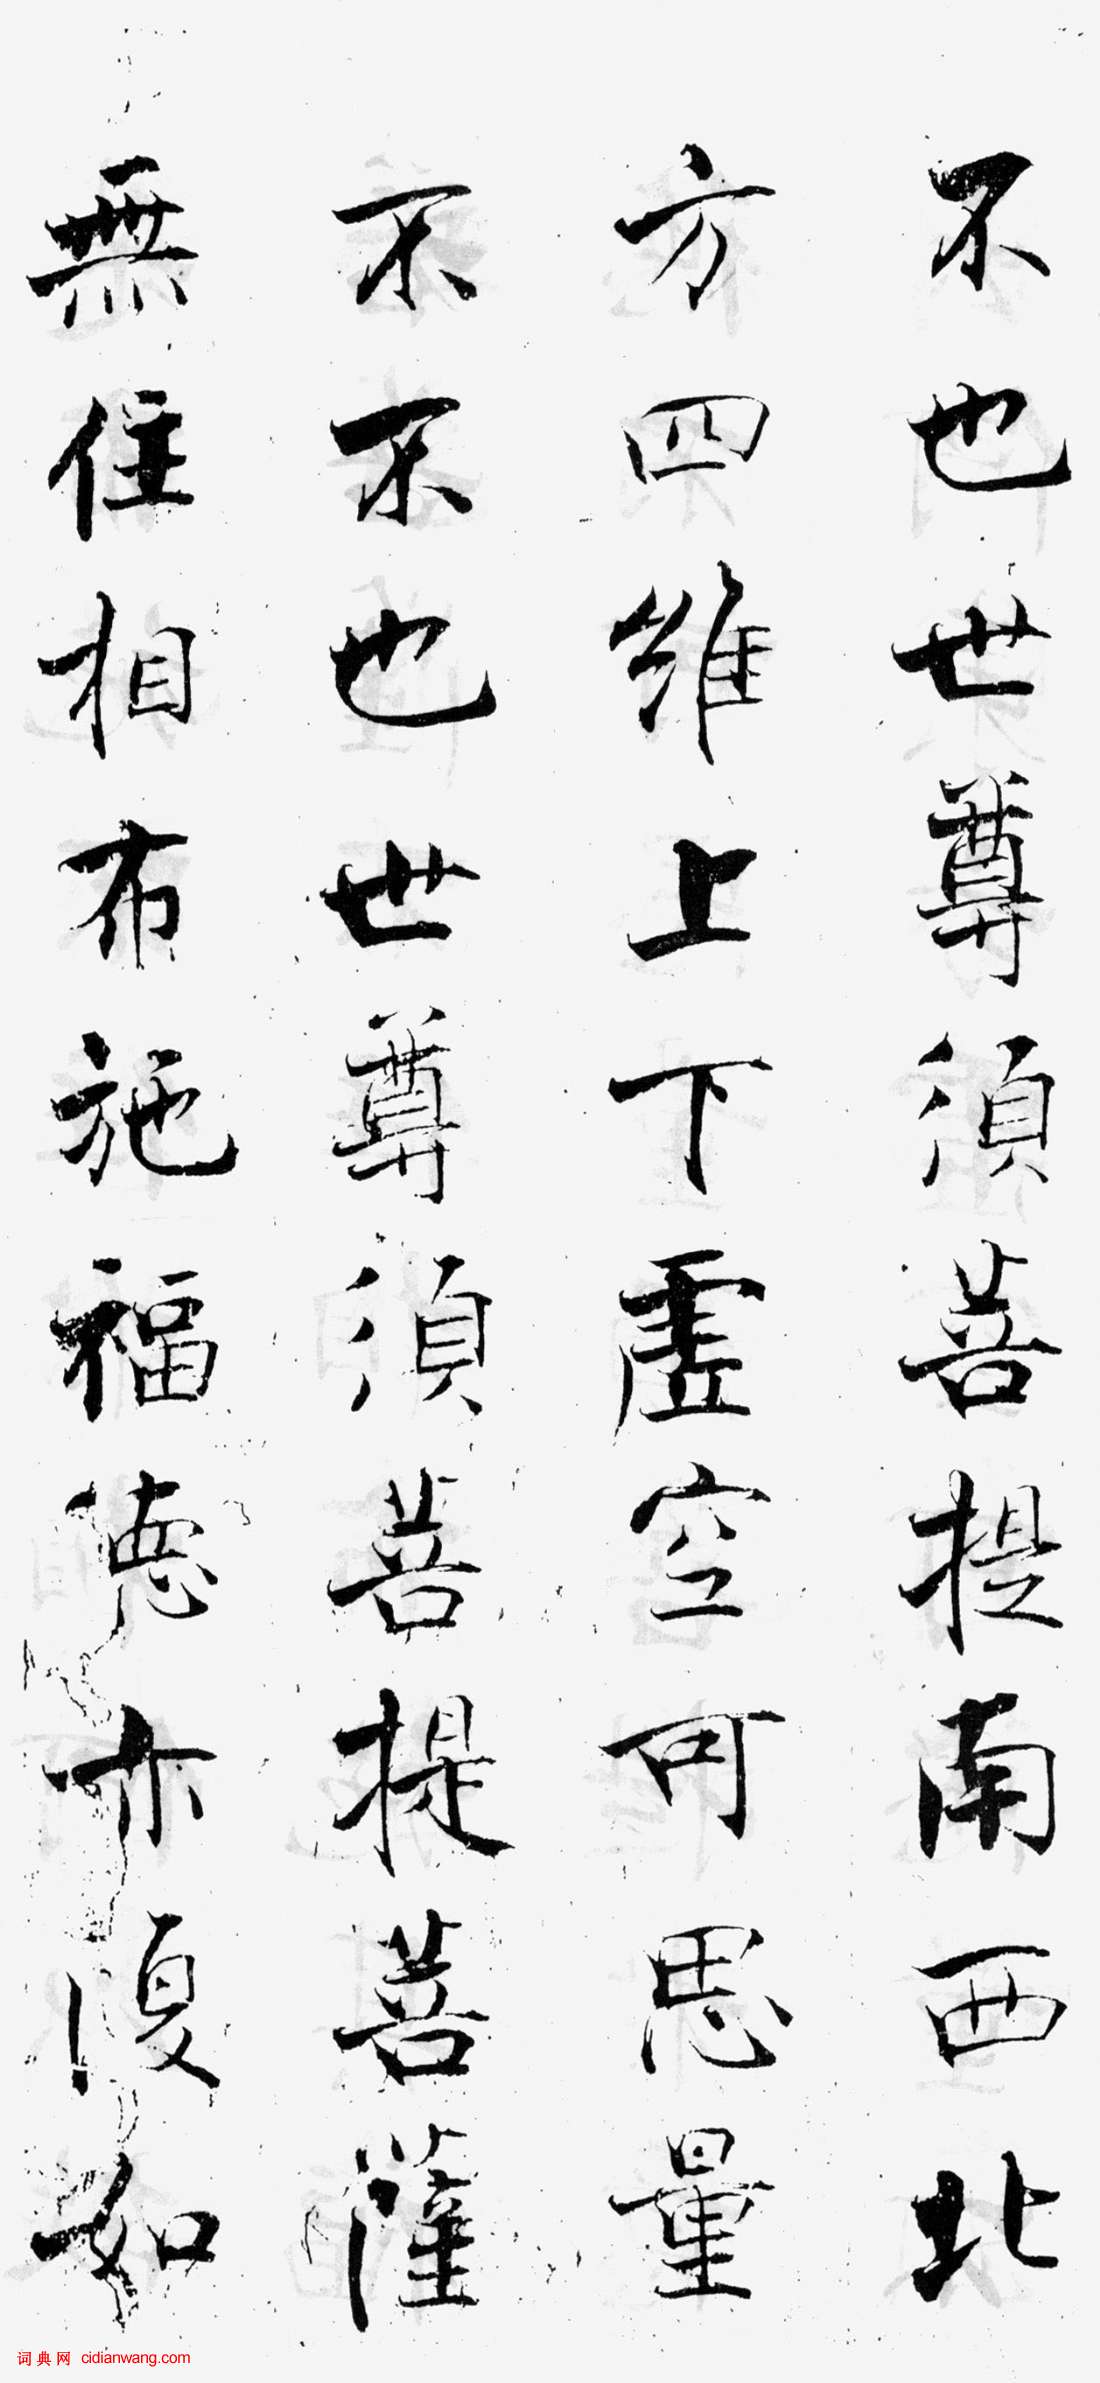 不也世尊須菩提南西北
方四維上下虛空可思量
不不也世尊須菩提菩薩
無住相布施福德亦復如
词典网 cidianwang.com